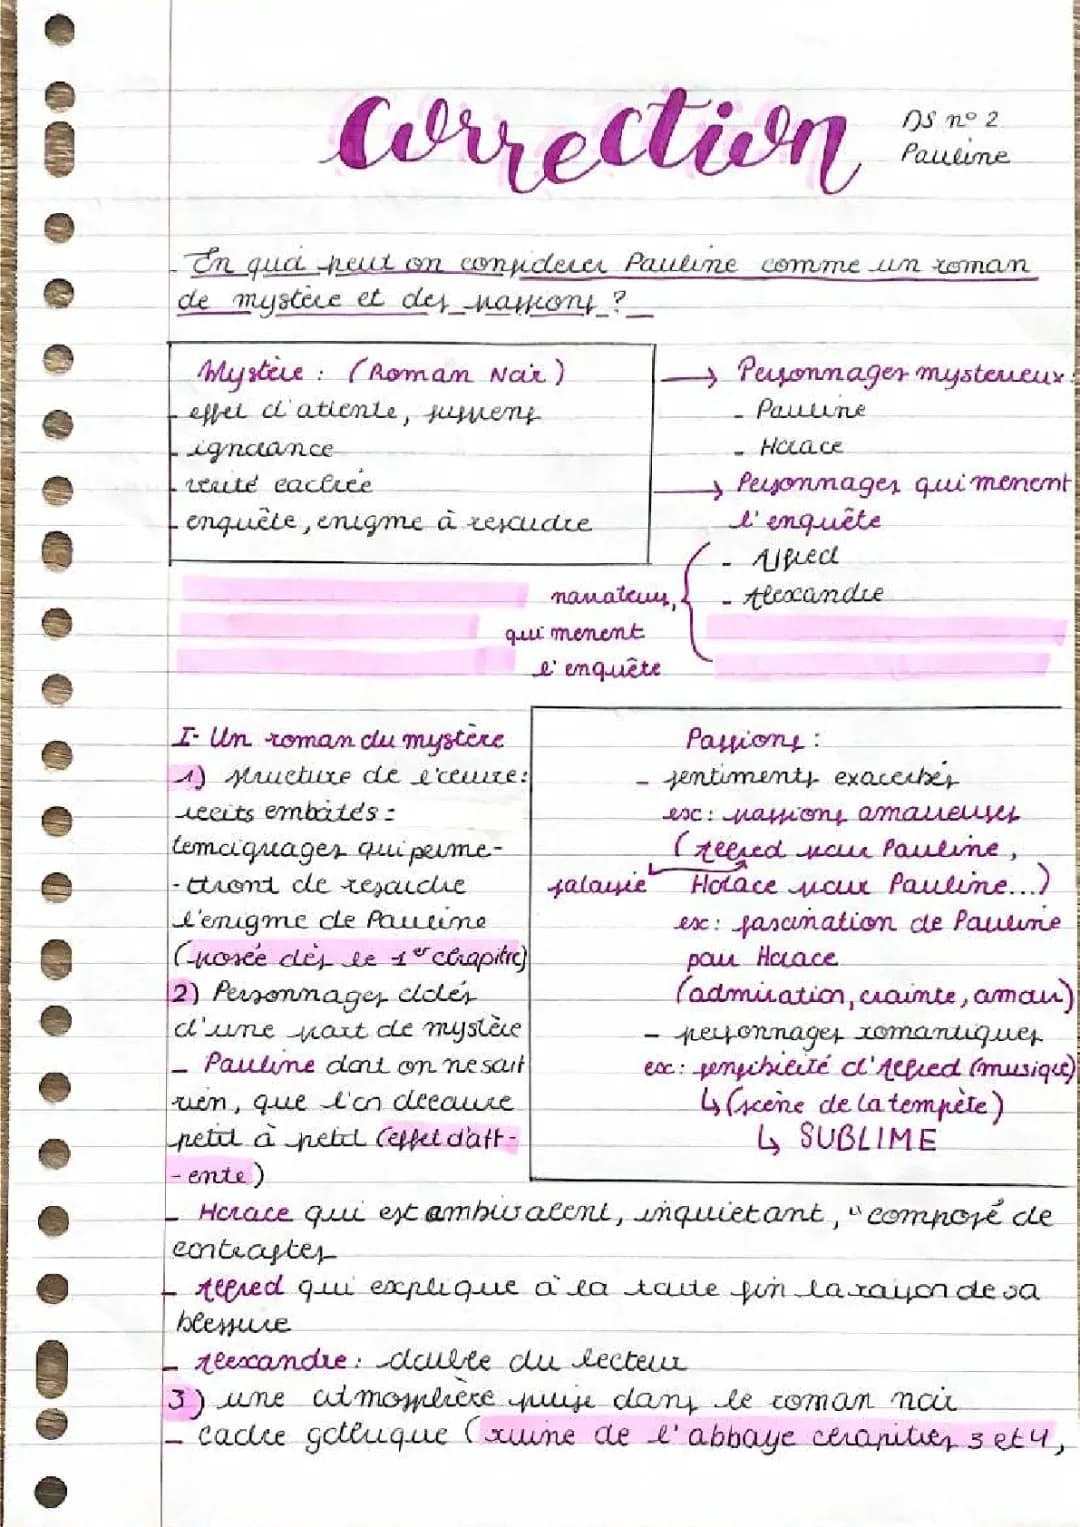 Correction
DS n° 2
Pauline
En quoi peut on considerer Pauline comme un roman
de mystère et des passions ?
Mystère : (Roman Noir)
- effet d'attente, suspens
- ignorance
- verité cachée
- enquête, enigme à resoudre
→ Personnages mysterieux :
- Pauline
- Horace
→ Personnages qui menent
l'enquête
- Alfred
- Alexandre
narrateurs,
qui menent
l'enquête
I- Un roman du mystère
1) structure de l'œuvre :
recits emboités :
temoignages qui perme-
-ttront de resoudre
l'enigme de Pauline
(posée dès le 1er chapitre)
2) Personnages dotés
d'une part de mystère
- Pauline dont on ne sait
rien, que l'on decouvre
petit à petit (effet d'att-
-ente)
Passions :
- sentiments exacerbés
ex : passions amoureuses
(Alfred pour Pauline,
jalousie Horace pour Pauline...)
ex : fascination de Pauline
pour Horace
(admiration, crainte, amour)
- personnages romantiques
ex : sensibilité d'Alfred (musique)
↳ (scène de la tempête)
↳ SUBLIME
- Horace qui est ambivalent, inquietant, "composé de
contrastes
- Alfred qui explique à la toute fin la raison de sa
blessure
- Alexandre : double du lecteur
3) une atmosphère puise dans le roman noir
- cadre gothique (ruine de l'abbaye chapitres 3 et 4,